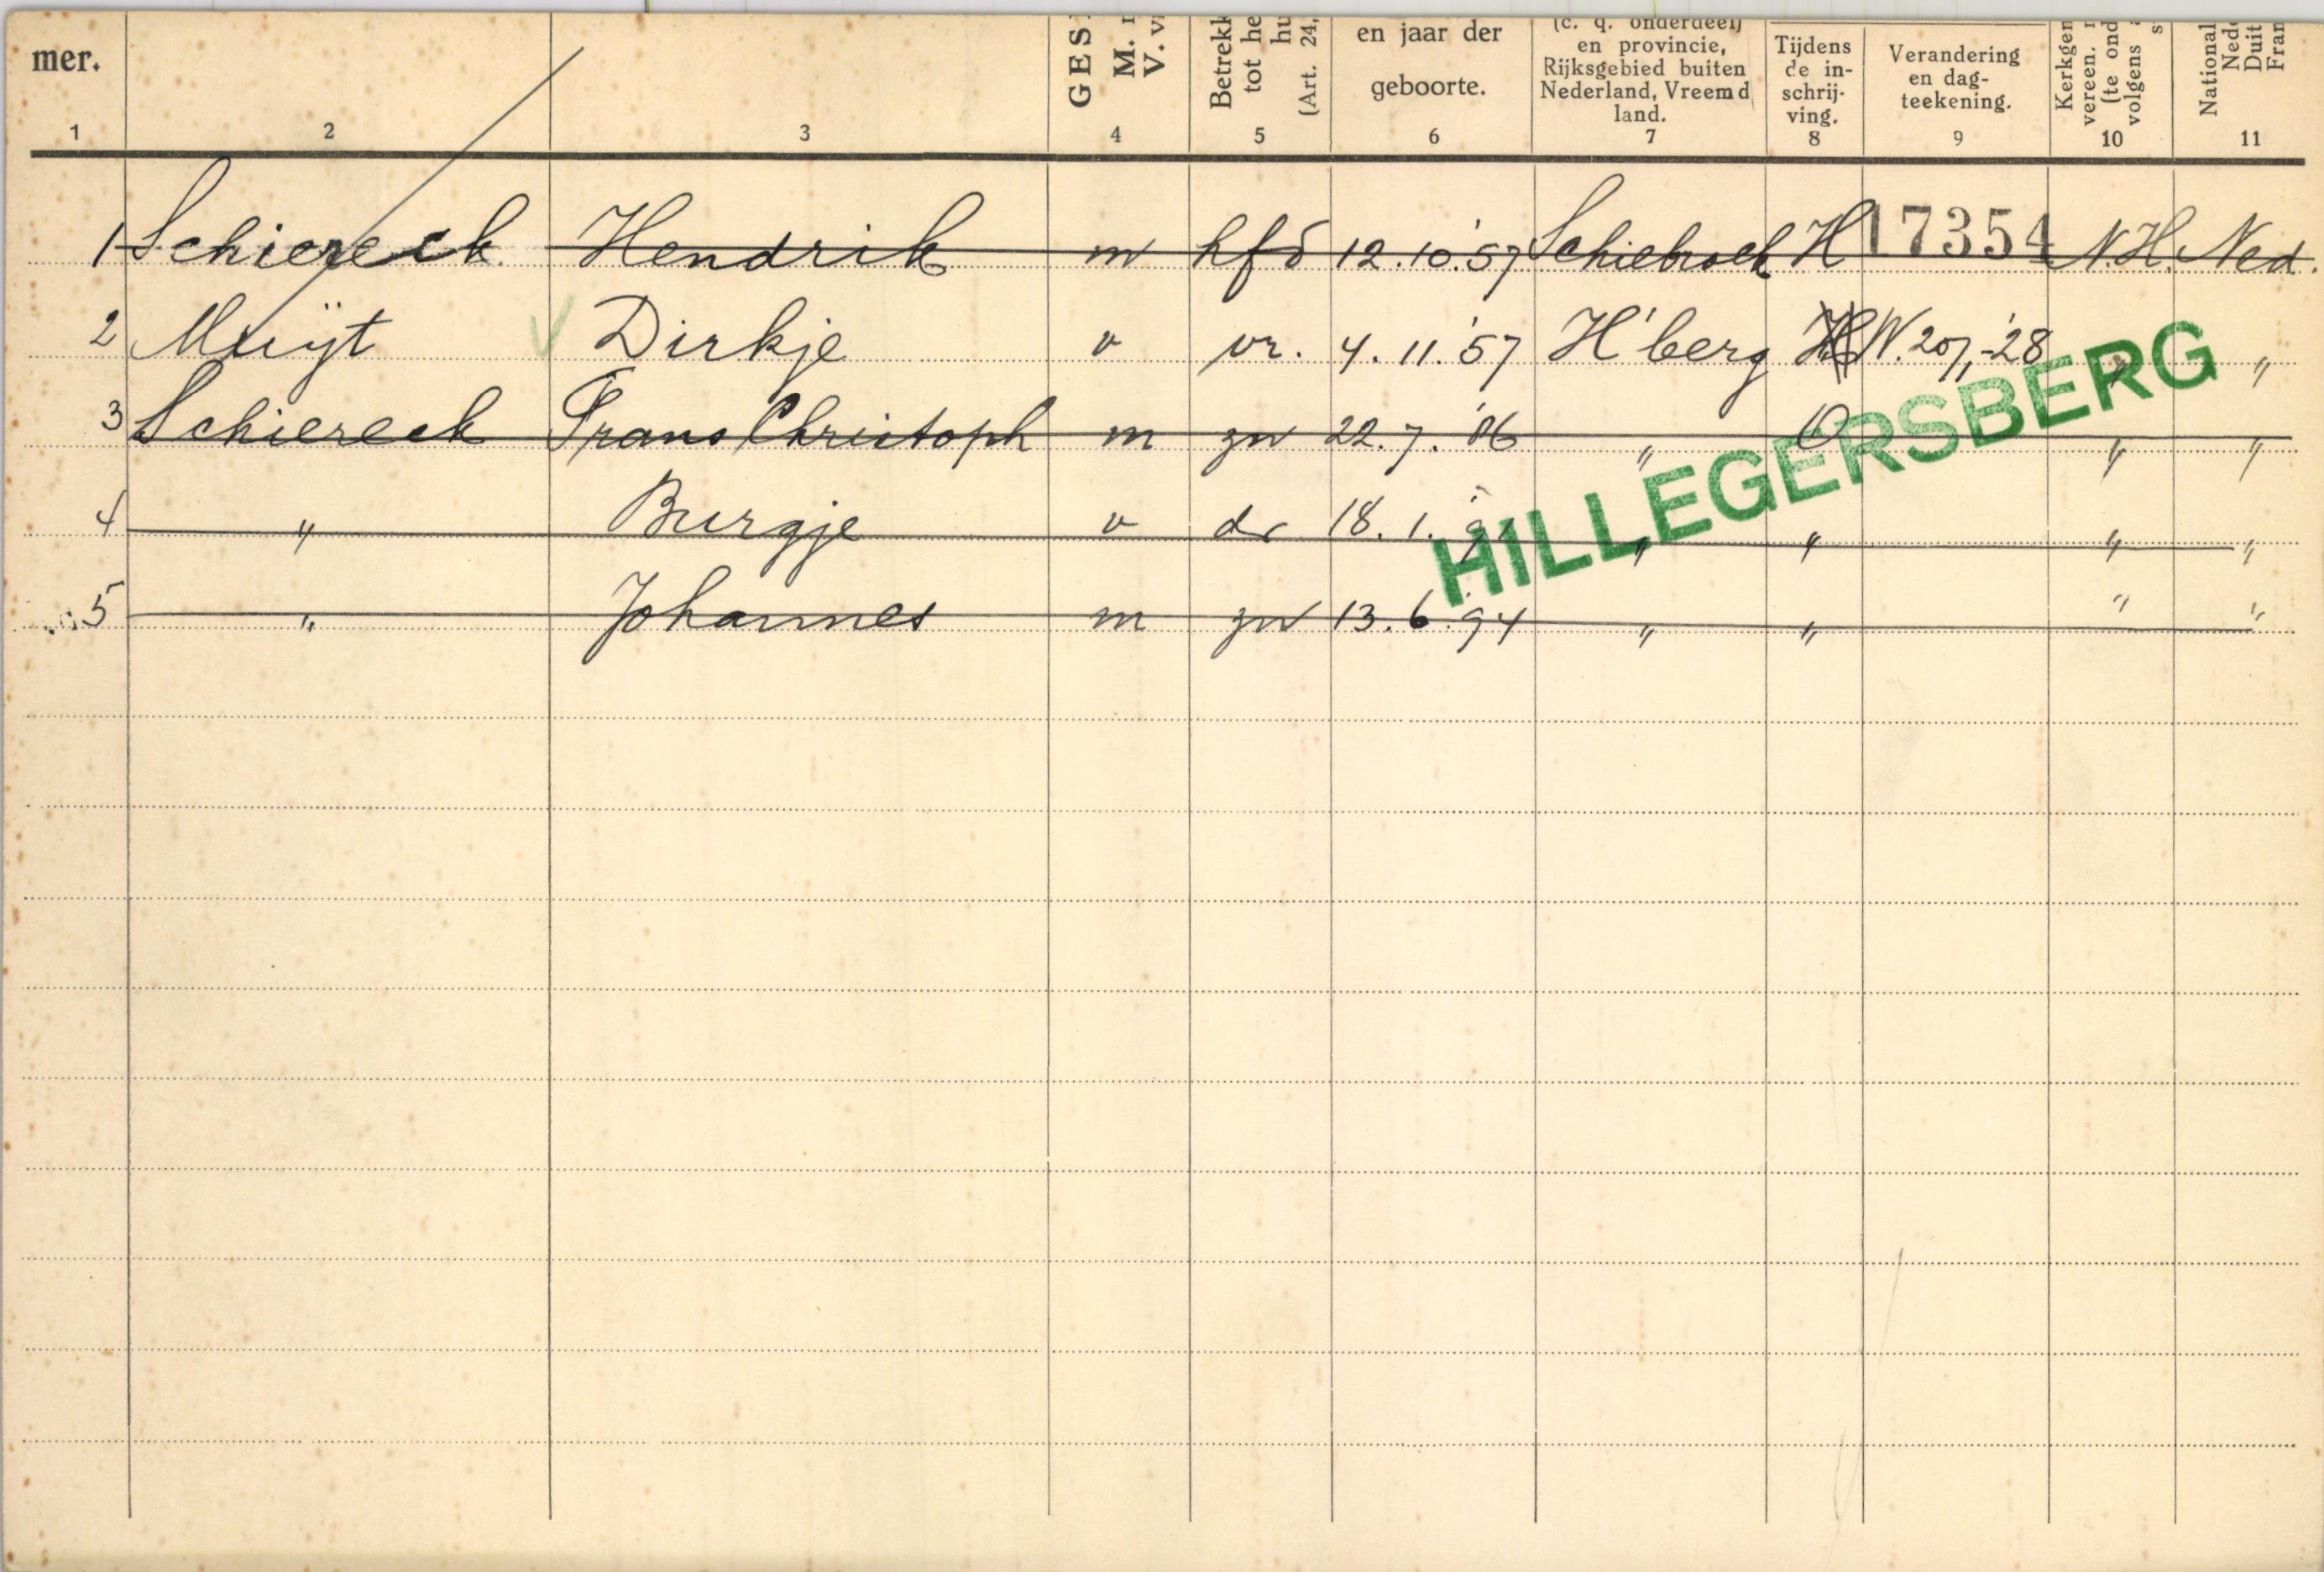 mer.
GES
M.
V. v
Betrekk
tot he
hu
(Art. 24,
en jaar der
geboorte.
(c. q. onderdeel)
en provincie,
Rijksgebied buiten
Nederland, Vreemd
land.
Tijdens
de in-
schrij-
ving.
Verandering
en dag-
teekening.
Kerkgen
vereen.
(te ond
volgens
s
National
Ned
Duit
Fran
1 2 3 4 5 6 7 8 9 10 11
1 Schiereck Hendrik m hfd 12.10.'57 Schiebroek H 17354 N.H. Ned.
2 Muijt Dirkje v vr. 4.11.'57 H'berg W. 20/1-'28 " "
3 Schiereck Frans Christoph m zn 22.7.'86 " O " "
4 " Burgje v dr 18.1.'91 " " " "
5 " Johannes m zn 13.6.'94 " " " "
HILLEGERSBERG